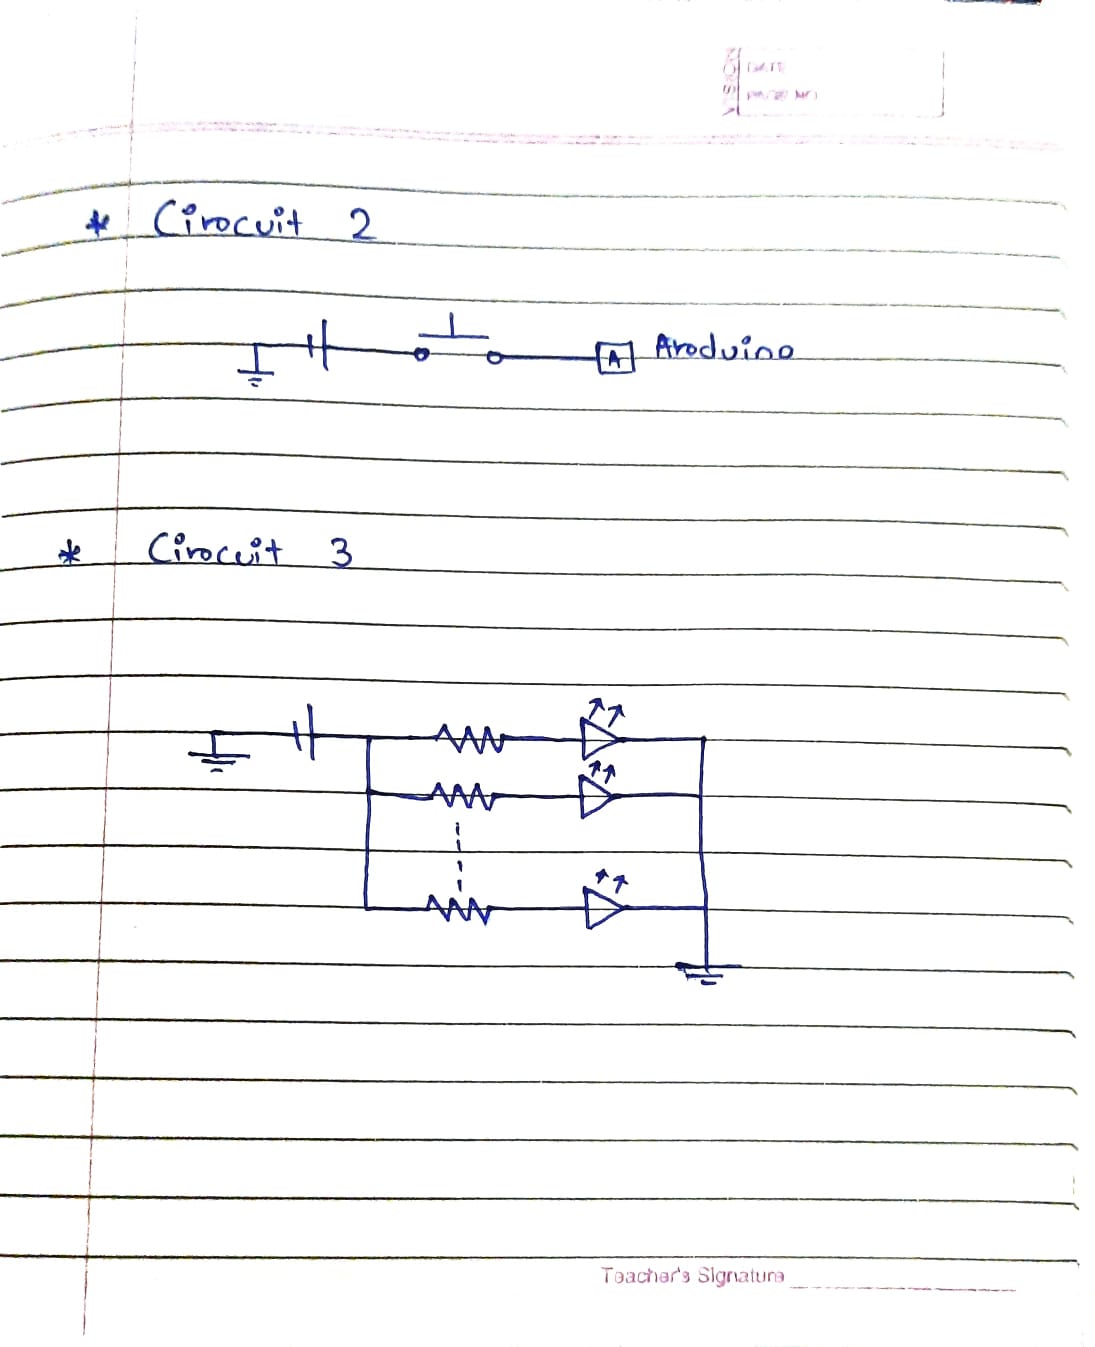 DATE
PAGE NO
* Cirocuit 2
A Aroduino
* Cirocuit 3
Teacher's Signature